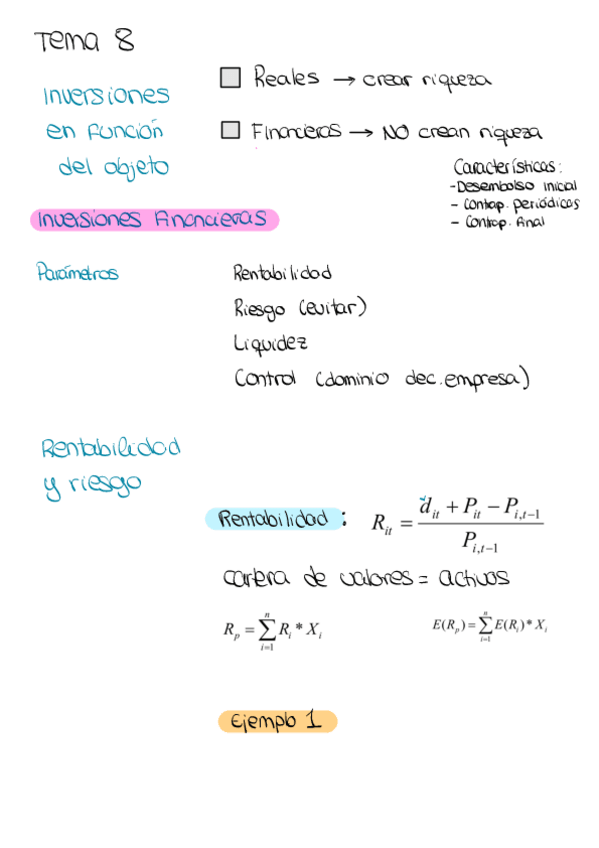 Tema 8
Inversiones
en función
del objeto
Reales → crear riqueza
Financieras → NO crean riqueza
Características:
- Desembolso inicial
- Contrap. periódicas
- Contrap. final
Inversiones Financieras
Parámetros
Rentabilidad
Riesgo (evitar)
Liquidez
Control (dominio dec. empresa)
Rentabilidad
y riesgo
Rentabilidad: R_{it} = \frac{d_{it} + P_{it} - P_{i,t-1}}{P_{i,t-1}}
cartera de valores = activos
R_p = \sum_{i=1}^{n} R_i * X_i
E(R_p) = \sum_{i=1}^{n} E(R_i) * X_i
Ejemplo 1